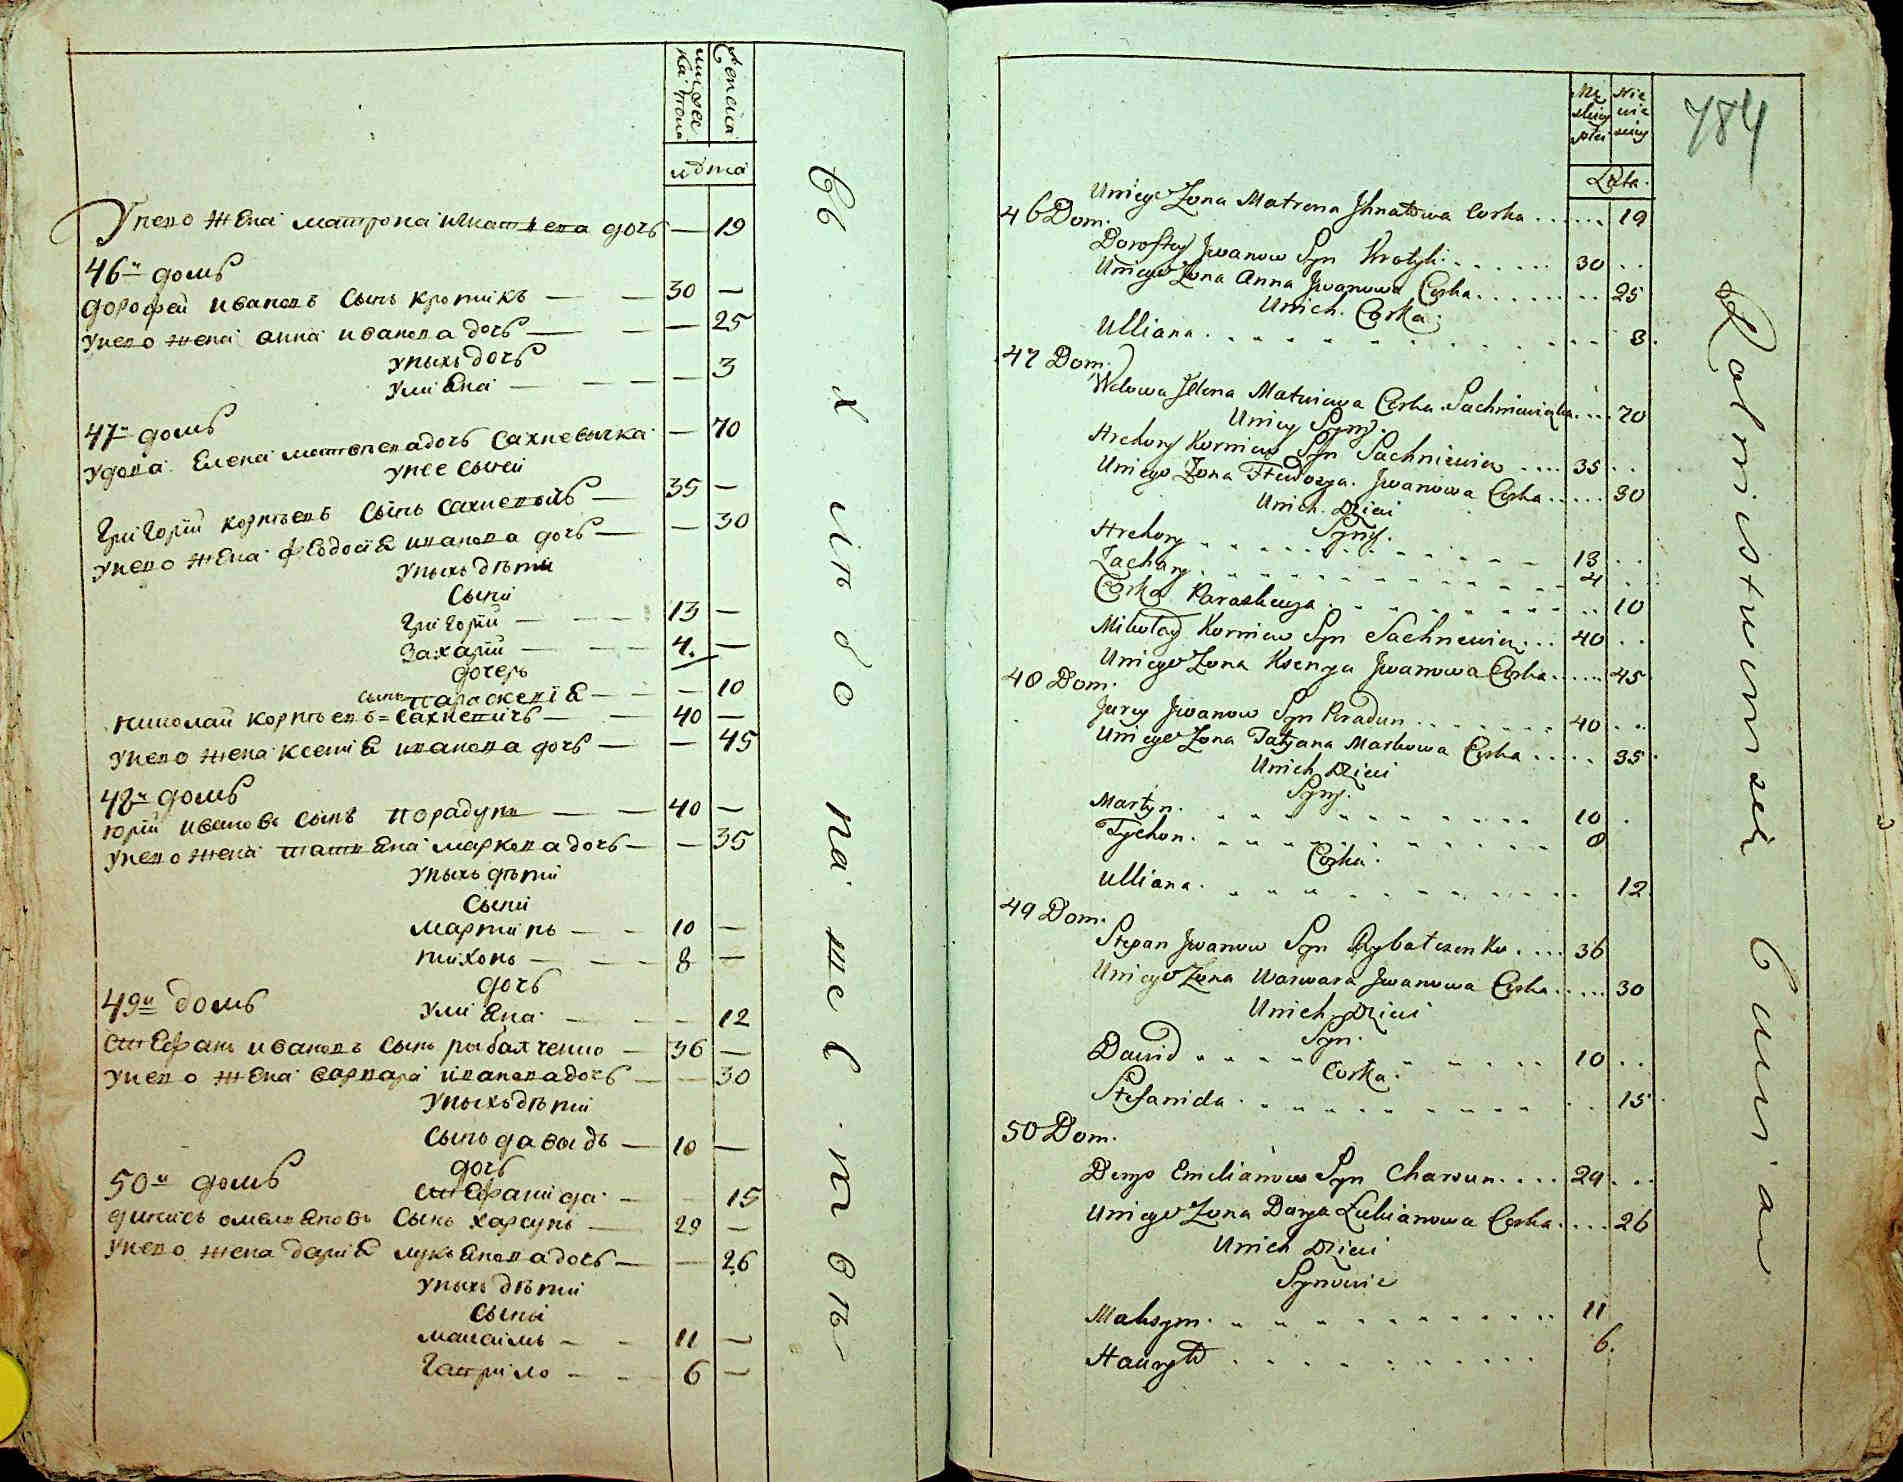 мужеска пола
Женска
лѣта
Унего жена матрона игнатьева дочъ — 19
46й домъ
дорофей ивановъ сынъ кротикъ — — 30 —
унего жена анна иванова дочъ — — — 25
унихъ дочъ
улиѣна — — — — 3
47й домъ
удова Елена матвеева дочъ сахневичка — 70
унее сыни
григорий корнѣевъ сынъ сахневичъ — 35 —
унего жена феодосиѣ иванова дочъ — — 30
унихъ дѣти
сыни
григорий — — — 13 —
захарий — — — 4. —
дочерь
параскевиѣ — — — 10
николай корнѣевъ сынъ = сахневичъ — — 40 —
унего жена ксениѣ иванова дочъ — — 45
48й домъ
юрий ивановъ сынъ порадунъ — — 40 —
унего жена татьѣна маркова дочъ — — 35
унихъ дѣти
сыни
мартинъ — — 10 —
тихонъ — — — 8 —
дочъ
улиѣна — — — 12
49й домъ
стефанъ ивановъ сынъ рибалченко — 36 —
унего жена варвара иванова дочъ — — 30
унихъ дѣти
сынъ давыдъ — 10 —
дочъ
стефанида — — 15
50й домъ
динисъ омельѣновъ сынъ харсунъ — 29 —
унего жена дариѣ лукьѣнова дочъ — — 26
унихъ дѣти
сыни
максимъ — — 11 —
гаврило — — 6 —
въ хлѣбопашествѣ
784
Męskiey płci
Niewieściey
Lata.
Uniego Żona Matrona Jhnatowa Corka . . . . . . 19
46 Dom.
Dorofiey Jwanow Syn Krotyk . . . . . . 30 . .
Uniego Żona Anna Jwanowa Corka . . . . . . . . 25
Unich Corka.
Ulliana . . . . . . . . . . . . . . 3.
47 Dom.
Wdowa Jelena Matwiewa Corka Sachniewiczka . . . . 70
Uniey Syny.
Hrehory Korniew Syn Sachniewicz . . . . 35 . .
Uniego Żona Fteodozya Jwanowa Corka . . . . . 30
Unich Dzieci
Syny.
Hrehory . . . . . . . . . . . . 13 . .
Zachary . . . . . . . . . . . . 4 . .
Corka Paraskewya . . . . . . . . . . . 10
Mikołay Korniew Syn Sachnewicz . . . 40 . .
Uniego Żona Ksenya Jwanowa Corka . . . . . . 45.
48 Dom.
Jurey Jwanow Syn Paradun . . . . . . . 40 . .
Uniego Żona Tatjana Markowa Corka . . . . . 35
Unich Dzieci
Syny.
Martyn . . . . . . . . . . . 10 .
Tychon . . . . . . . . . . . 8
Corka.
Ulliana . . . . . . . . . . . . 12.
49 Dom.
Stepan Jwanow Syn Rybatczenko . . . . 36
Uniego Żona Warwara Jwanowa Corka . . . . . 30
Unich Dzieci
Syn.
Dawid . . . . . . . . . . . 10 . .
Corka.
Stefanida . . . . . . . . . . . . 15.
50 Dom.
Denys Emelianow Syn Charsun . . . . 29 . . .
Uniego Żona Darya Łukianowa Corka . . . . 26
Unich Dzieci
Synowie
Maksym . . . . . . . . . . . 11
Hauryło . . . . . . . . . . . 6.